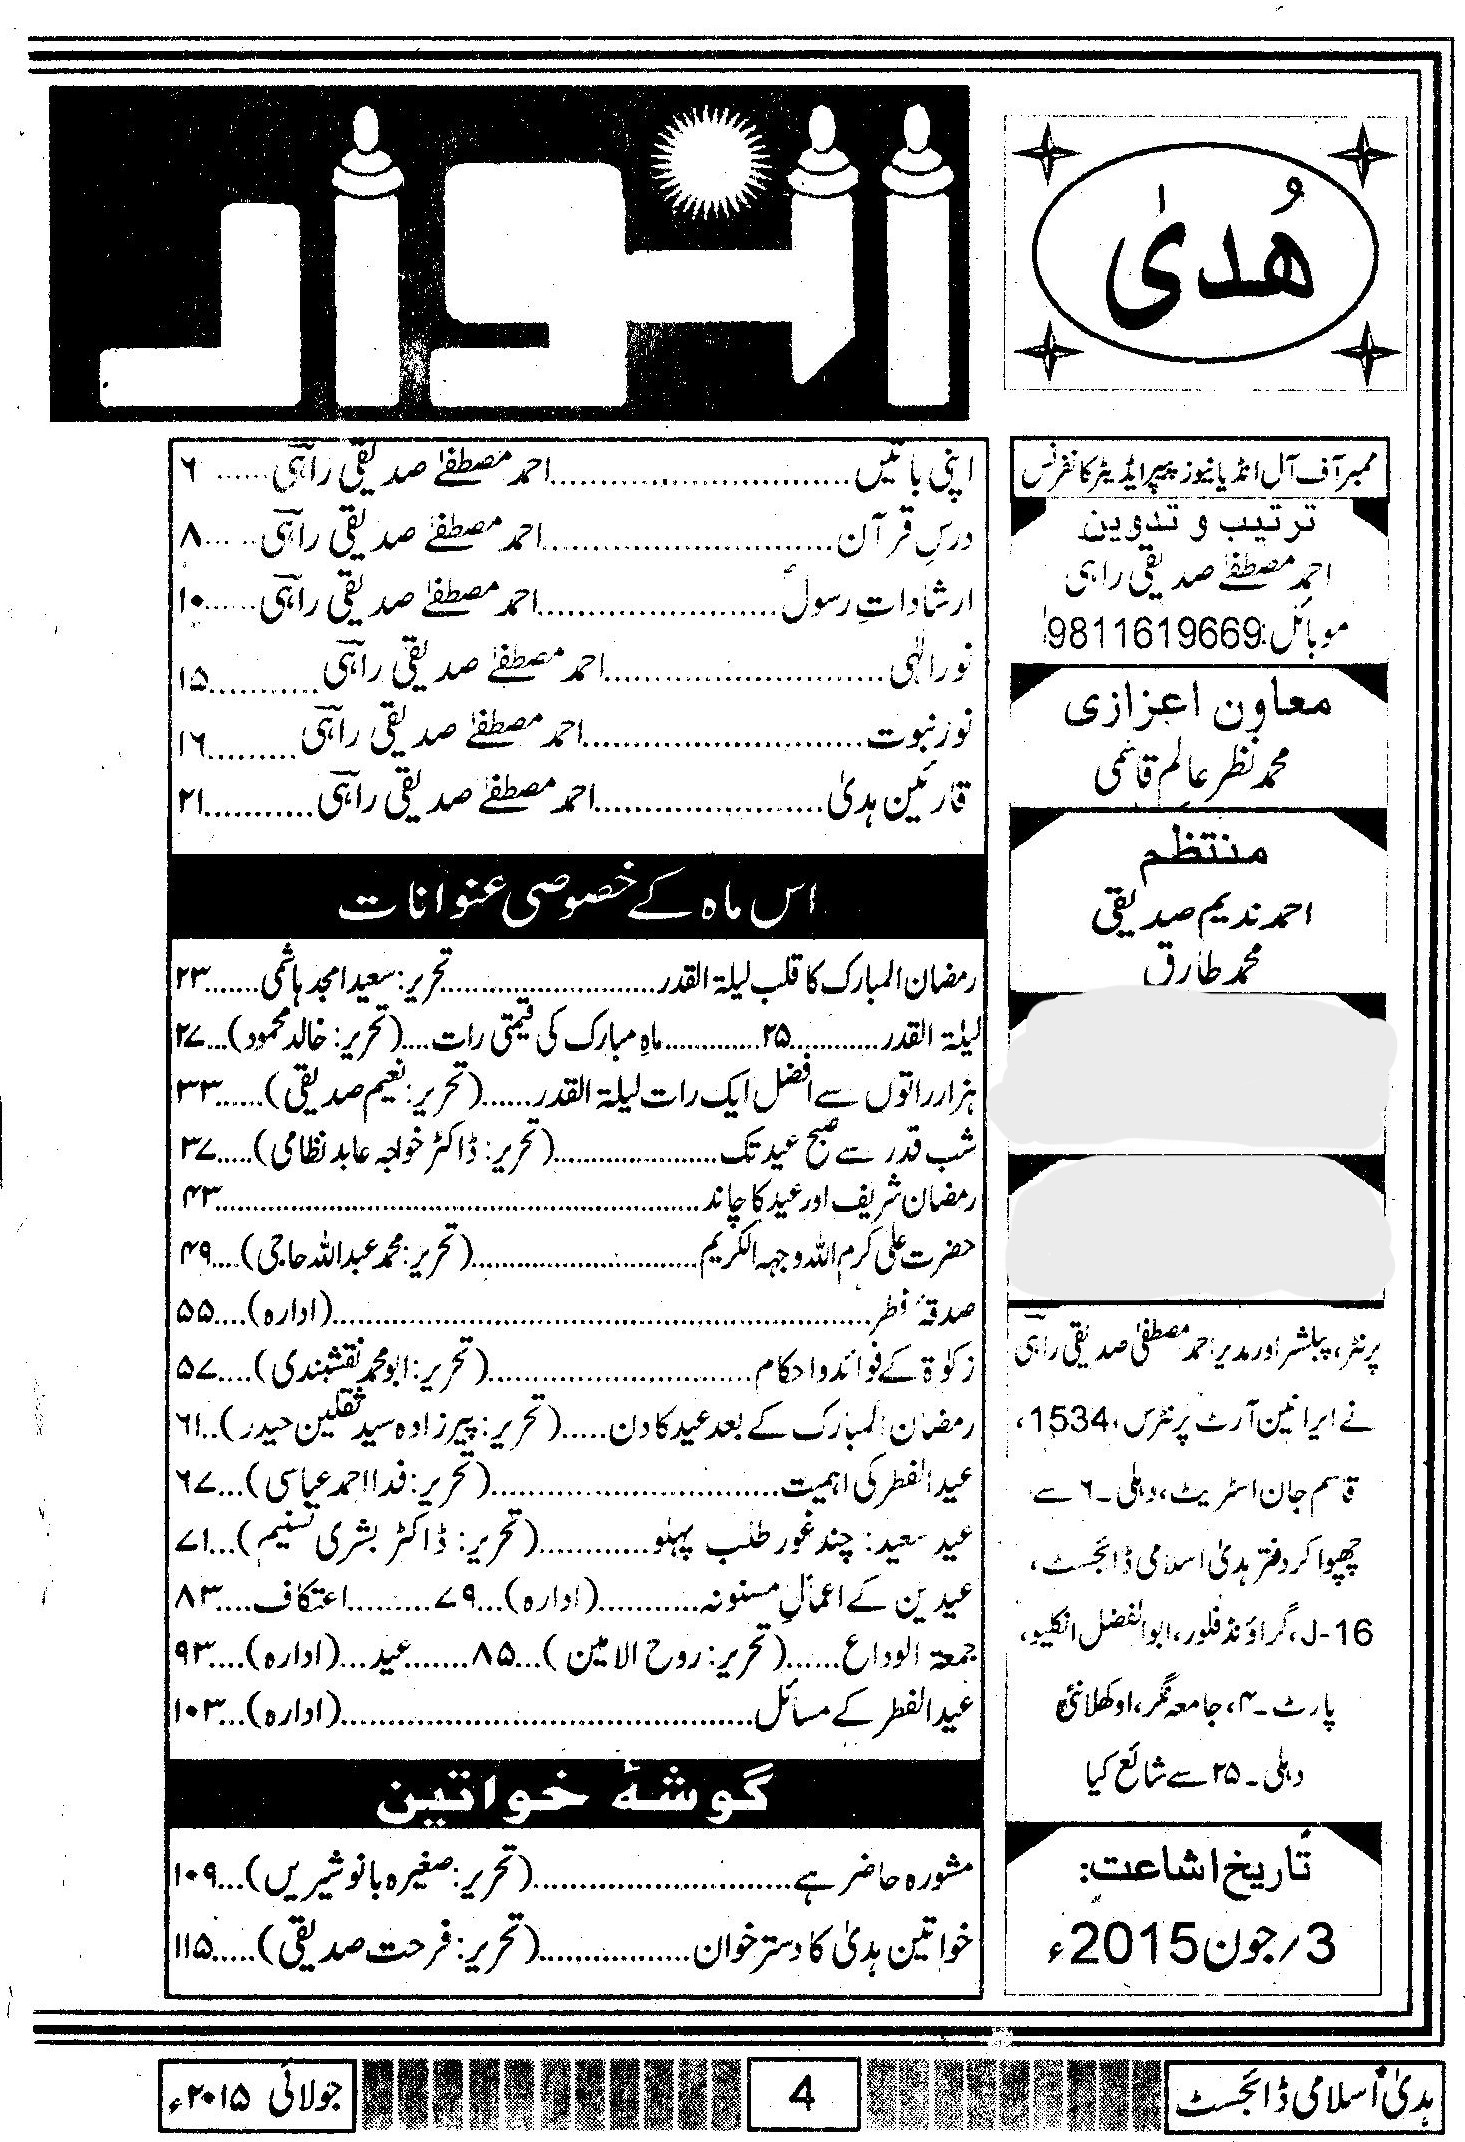 ھُدیٰ
انوار
ممبر آف آل انڈیا نیوز پیپر ایڈیٹر کانفرنس
ترتیب و تدوین
احمد مصطفےٰ صدیقی راہی
موبائل: 9811619669
معاون اعزازی
محمد نظر عالم قاسمی
منتظم
احمد ندیم صدیقی
محمد طارق
پرنٹر، پبلشر اور مدیر: احمد مصطفیٰ صدیقی راہی
نے ایرانین آرٹ پرنٹرس، 1534،
قاسم جان اسٹریٹ، دہلی۔۶ سے
چھپوا کر دفتر ہدیٰ اسلامی ڈائجسٹ،
J-16، گراؤنڈ فلور، ابوالفضل انکلیو،
پارٹ۔۴، جامعہ نگر، اوکھلا نئی
دہلی۔۲۵ سے شائع کیا
تاریخ اشاعت:
3/جون 2015ء
اپنی باتیں..........احمد مصطفےٰ صدیقی راہی......۶
درسِ قرآن..........احمد مصطفےٰ صدیقی راہی......۸
ارشاداتِ رسولؐ..........احمد مصطفےٰ صدیقی راہی......۱۰
نور الٰہی..........احمد مصطفےٰ صدیقی راہی..........۱۵
نور نبوت..........احمد مصطفےٰ صدیقی راہی..........۱۶
قارئین ہدیٰ..........احمد مصطفےٰ صدیقی راہی..........۲۱
اس ماہ کے خصوصی عنوانات
رمضان المبارک کا قلب لیلۃ القدر..........تحریر: سعید امجد ہاشمی......۲۳
لیلۃ القدر..........۲۵..........ماہِ مبارک کی قیمتی رات....(تحریر: خالد محمود)...۲۷
ہزار راتوں سے افضل ایک رات لیلۃ القدر......(تحریر: نعیم صدیقی)......۳۳
شب قدر سے صبح عید تک..........(تحریر: ڈاکٹر خواجہ عابد نظامی).....۳۷
رمضان شریف اور عید کا چاند..........۴۳
حضرت علی کرم اللہ وجہہ الکریم..........(تحریر: محمد عبداللہ حاجی)....۴۹
صدقۂ فطر..........(ادارہ)....۵۵
زکوٰۃ کے فوائد و احکام..........(تحریر: ابو محمد نقشبندی)....۵۷
رمضان المبارک کے بعد عید کا دن.....(تحریر: پیرزادہ سید ثقلین حیدر)..۶۱
عید الفطر کی اہمیت..........(تحریر: فدا احمد عباسی)...۶۷
عید سعید: چند غور طلب پہلو..........(تحریر: ڈاکٹر بشری تسنیم)...۷۱
عیدین کے اعمالِ مسنونہ..........(ادارہ)...۷۹.........اعتکاف....۸۳
جمعۃ الوداع......(تحریر: روح الامین)...۸۵.......عید...(ادارہ)....۹۳
عید الفطر کے مسائل..........(ادارہ)...۱۰۳
گوشۂ خواتین
مشورہ حاضر ہے..........(تحریر: صغیرہ بانو شیریں)...۱۰۹
خواتین ہدیٰ کا دستر خوان..........(تحریر: فرحت صدیقی).....۱۱۵
ہدیٰ اسلامی ڈائجسٹ
4
جولائی ۲۰۱۵ء